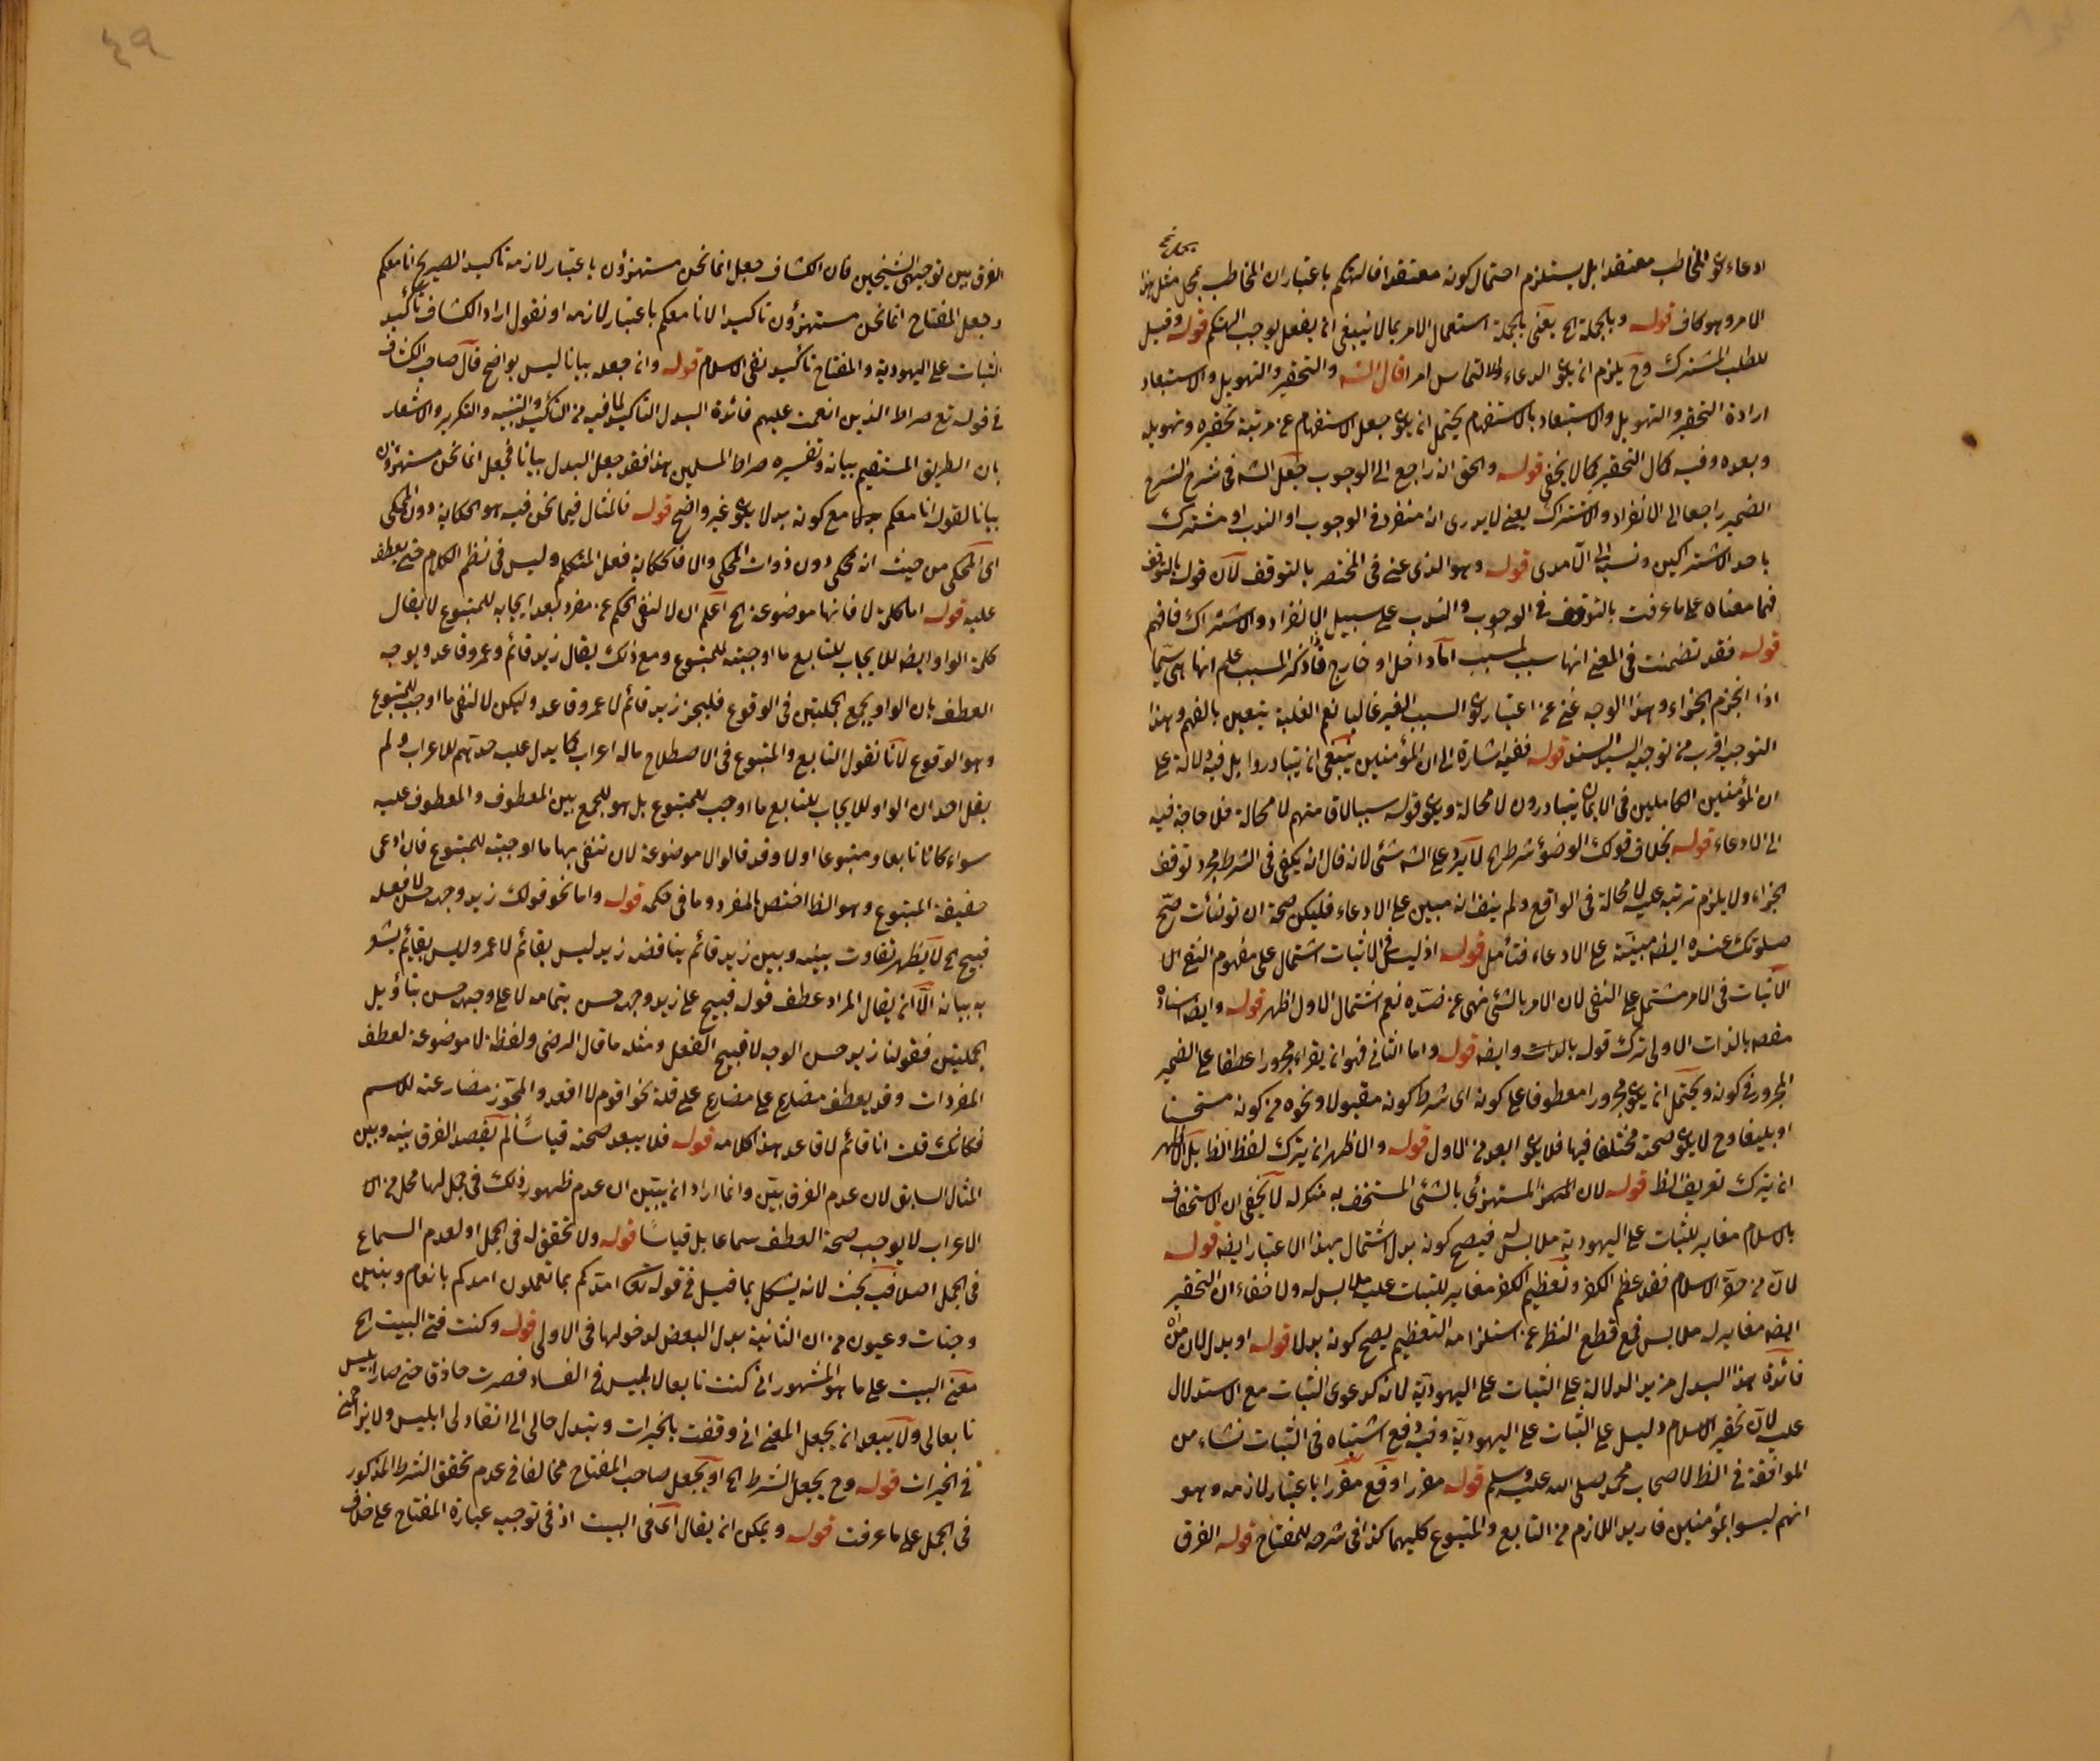 ادعاء كون المخاطب معتقدا بل يستلزم احتمال كونه معتقدا فالتهكم باعتبار ان المخاطب بمحل مثل هذا
الامر وهو كاف قوله وبالجملة الخ يعنى بالجملة استعمال الامر بما لا ينبغى ان يفعل يوجب التهكم قوله وقيل
للطلب المشترك وح يلزم ان يكون الدعاء والالتماس امرا قال الشه والتحقير والتهويل والاستبعاد
ارادة التحقير والتهويل والاستبعاد بالاستفهام يحتمل ان يكون جعل الاستفهام عن مرتبة تحقيره وتهويله
وبعده وفيه كمال التحقير كما لا يخفى قوله والحق انه راجع الى الوجوب جعل الشه فى شرح الشرح
الضمير راجعا الى الانفراد والاشتراك يعنى لا يدرى انه منفرد فى الوجوب او الندب او مشترك
باحد الاشتراكين ونسب الى الآمدى قوله وهو الذى عنى فى المختصر بالتوقف لان قوله بالتوقف
فيما معناه على ما عرفت بالتوقف فى الوجوب والندب على سبيل الانفراد والاشتراك فافهم
قوله فقد تضمنت فى المعنى انها سبب لمسبب اما داخل او خارج فاذا ذكر المسبب علم انها هى سيما
اذا انجزم الجزاء وهذا الوجه غنى عن اعتبار كون السبب الغير غالبا نعم الغلبة يتعين بالفهم وهذا
التوجيه اقرب من توجيه السيد السند قوله ففيه اشارة الى ان المؤمنين ينبغى ان يتبادروا بل فيه دلالة على
ان المؤمنين الكاملين فى الايمان يتبادرون لا محالة ويكون قوله سببا لاقامتهم لا محالة فلا حاجة فيه
الى الادعاء قوله بخلاف قولك الوضوء شرط الخ لا يرد على الشه شئ لانه قال انه يكفى فى الشرط مجرد توقف
الجزاء ولا يلزم ترتبه عليه لا محالة فى الواقع ولم ينف انه مبين على الادعاء فليكن صحة ان توضأت صح
صلوتك عنده ايضا مبينة على الادعاء فتأمل قوله اذ ليس فى الاثبات اشتمال على مفهوم النفى الا
الاثبات فى الامر مشتمل على النفى لان الامر بالشئ نهى عن ضده نعم اشتمال الاول اظهر قوله وايضا اسناده
مقصه بالذات الاولى ترك قوله بالذات وايضا قوله واما الثانى فهو ان يقرأ مجرورا عطفا على الضمير
المجرور فى كونه ويحتمل ان يكون مجرورا معطوفا على كونه اى شرط كونه مقبولا ونحوه من كونه مستحسنا
او بليغا وح لا يكون صحته مختلفا فيها فلا يكون ابعد من الاول قوله والاظهر ان يترك لفظ الظ بل الاظهر
ان يترك تعريف الظ قوله لان المهزو المستهزئ بالشئ المستخف به منكر له لا يخفى ان الاستخفاف
بالاسلام مغاير للثبات على اليهودية ملابس له فيصح كونه بدل اشتمال بهذا الاعتبار ايضا قوله
لان من حقر الاسلام فقد عظم الكفر وتعظيم الكفر مغاير للثبات عليه ملابس له ولا خفاء ان التحقير
ايضا مغاير له ملابس فمع قطع النظر عن استلزامه التعظيم يصح كونه بدلا قوله او بدل لان من
فائدة هذا البدل مزيد الدلالة على الثبات على اليهودية لانه كدعوى الثبات مع الاستدلال
عليه لان تحقير الاسلام دليل على الثبات على اليهودية وفيه دفع اشتباه فى الثبات نشاء من
الموافقة فى الظ لاصحاب محمد صلى الله عليه وسلم قوله مقررا وقع مقررا باعتبار لازمه وهو
انهم ليسوا بمؤمنين فاريد اللازم من التابع والمتبوع كليهما كذا فى شرحه للمفتاح قوله الفرق
٤٩
الفرق بين توجيهى الشيخين فان الكشاف جعل انما نحن مستهزؤن باعتبار لازمه تأكيد الصريح انا معكم
وجعل المفتاح انما نحن مستهزؤن تأكيدا لانا معكم باعتبار لازمه او نقول اراد الكشاف تأكيد
الثبات على اليهودية والمفتاح تأكيد نفى الاسلام قوله وانه جعله بيانا ليس بواضح قال صاحب الكشاف
فى قوله تع صراط الذين انعمت عليهم فائدة البدل التأكيد لما فيه من التأكيد والتنبيه والتكرير والاشعار
بان الطريق المستقيم بيانه وتفسيره صراط المسلمين هذا فقد جعل البدل بيانا فجعل انما نحن مستهزؤن
بيانا لقوله انا معكم مع كونه بدلا يكون غير واضح قوله فالمثال فيما نحن فيه هو الحكاية دون المحكى
اى المحكى من حيث انه محكى دون ذوات المحكى والا فالحكاية فعل المتكلم وليس فى نظم الكلام حتى يعطف
عليه قوله اما كلمة لا فانها موضوعة الخ اعلم ان لا لنفى الحكم عن مفرد بعد ايجابه للمتبوع لا يقال
كلمة الواو ايضا للايجاب للتابع ما اوجبته للمتبوع ومع ذلك يقال زيد قائم وعمرو قاعد ويوجه
العطف بان الواو يجمع الجملتين فى الوقوع فليجز زيد قائم لا عمرو قاعد وليكن لا لنفى ما اوجب للمتبوع
وهو الوقوع لانا نقول التابع والمتبوع فى الاصطلاح ماله اعراب كما يدل عليه حدتهم للاعراب ولم
يقل احد ان الواو للايجاب للتابع ما اوجب للمتبوع بل هو للجمع بين المعطوف والمعطوف عليه
سواء كانا تابعا ومتبوعا او لا وقد قالوا لا موضوعة لان تنفى بها ما اوجبته للمتبوع فان ادعى
حقيقة المتبوع وهو الظ اختص بالمفرد وما فى حكمه قوله واما نحو قولك زيد وجهه حسن لا فعله
قبيح الخ لا يظهر تفاوت بينه وبين زيد قائم يناقض زيد ليس بقائم لا عمرو ليس بقائم يشعر
به بيانه الا ان يقال المراد عطف قوله قبيح على زيد وجهه حسن بتمامه لا على وجهه حسن بتأويل
الجملتين فقولنا زيد حسن الوجه لا قبيح الفعل ومثله ما قال الرضى ولفظة لا موضوعة لعطف
المفردات وقد يعطف مضارع على مضارع على قلة نحو اقوم لا اقعد والمجوز مضارعته للاسم
فكانك قلت انا قائم لا قاعد هذا كلامه قوله فلا يبعد صحته قياسا لم يقصد الفرق بينه وبين
المثال السابق لان عدم الفرق بين وانما اراد ان يبين ان عدم ظهور ذلك فى جمل لها محل من الا
الاعراب لا يوجب صحة العطف سماعا بل قياسا قوله ولا تحقق له فى الجمل او لعدم السماع
فى الجمل اصلا فيه بحث لانه يشكل بما قيل فى قوله تعالى امدكم بما تعملون امدكم بانعام وبنين
وجنات وعيون من ان الثانية بدل البعض لدخولها فى الاولى قوله وكنت فتى البيت الخ
معنى البيت على ما هو المشهور انى كنت تابعا لابليس فى الفساد فصرت حاذقا حتى صار ابليس
تابعا لى ولا يبعد ان يجعل المعنى انى وقفت بالخيرات وتبدل حالى الى انقاد لى ابليس ولا يزاحمنى
فى الخيرات قوله وح يجعل الشرط الخ او يجعل صاحب المفتاح مخالفا فى عدم تحقق الشرط المذكور
فى الجمل على ما عرفت قوله ويمكن ان يقال انما فى البيت اذ فى توجيه عبارة المفتاح على خلاف